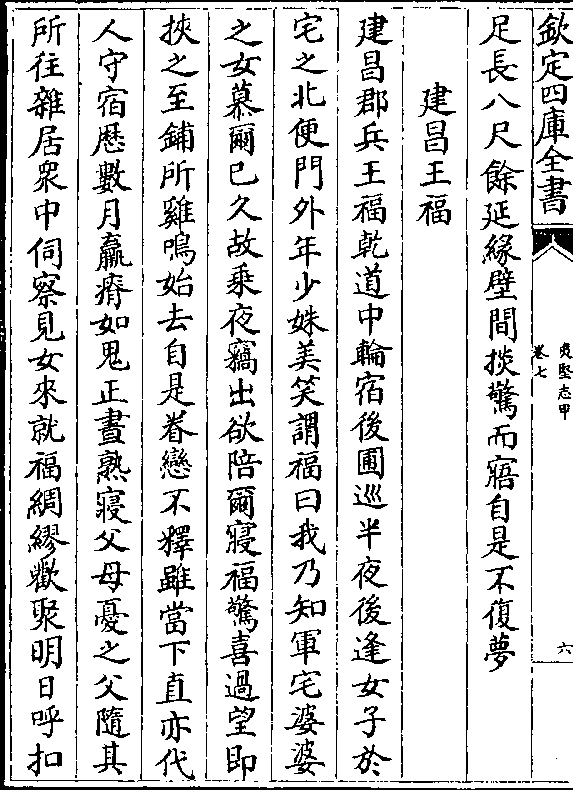 欽定四庫全書
夷堅志甲
卷七
六
足長八尺餘延緣壁間掞驚而寤自是不復夢
建昌王福
建昌郡兵王福乾道中輪宿後圃巡半夜後逢女子於
宅之北便門外年少姝美笑謂福曰我乃知軍宅婆婆
之女慕爾已久故乗夜竊出欲陪爾寢福驚喜過望即
挾之至鋪所雞鳴始去自是眷戀不釋雖當下直亦代
人守宿厯數月羸瘠如鬼正晝熟寢父母憂之父隨其
所往雜居衆中伺察見女來就福綢繆歡聚明日呼扣